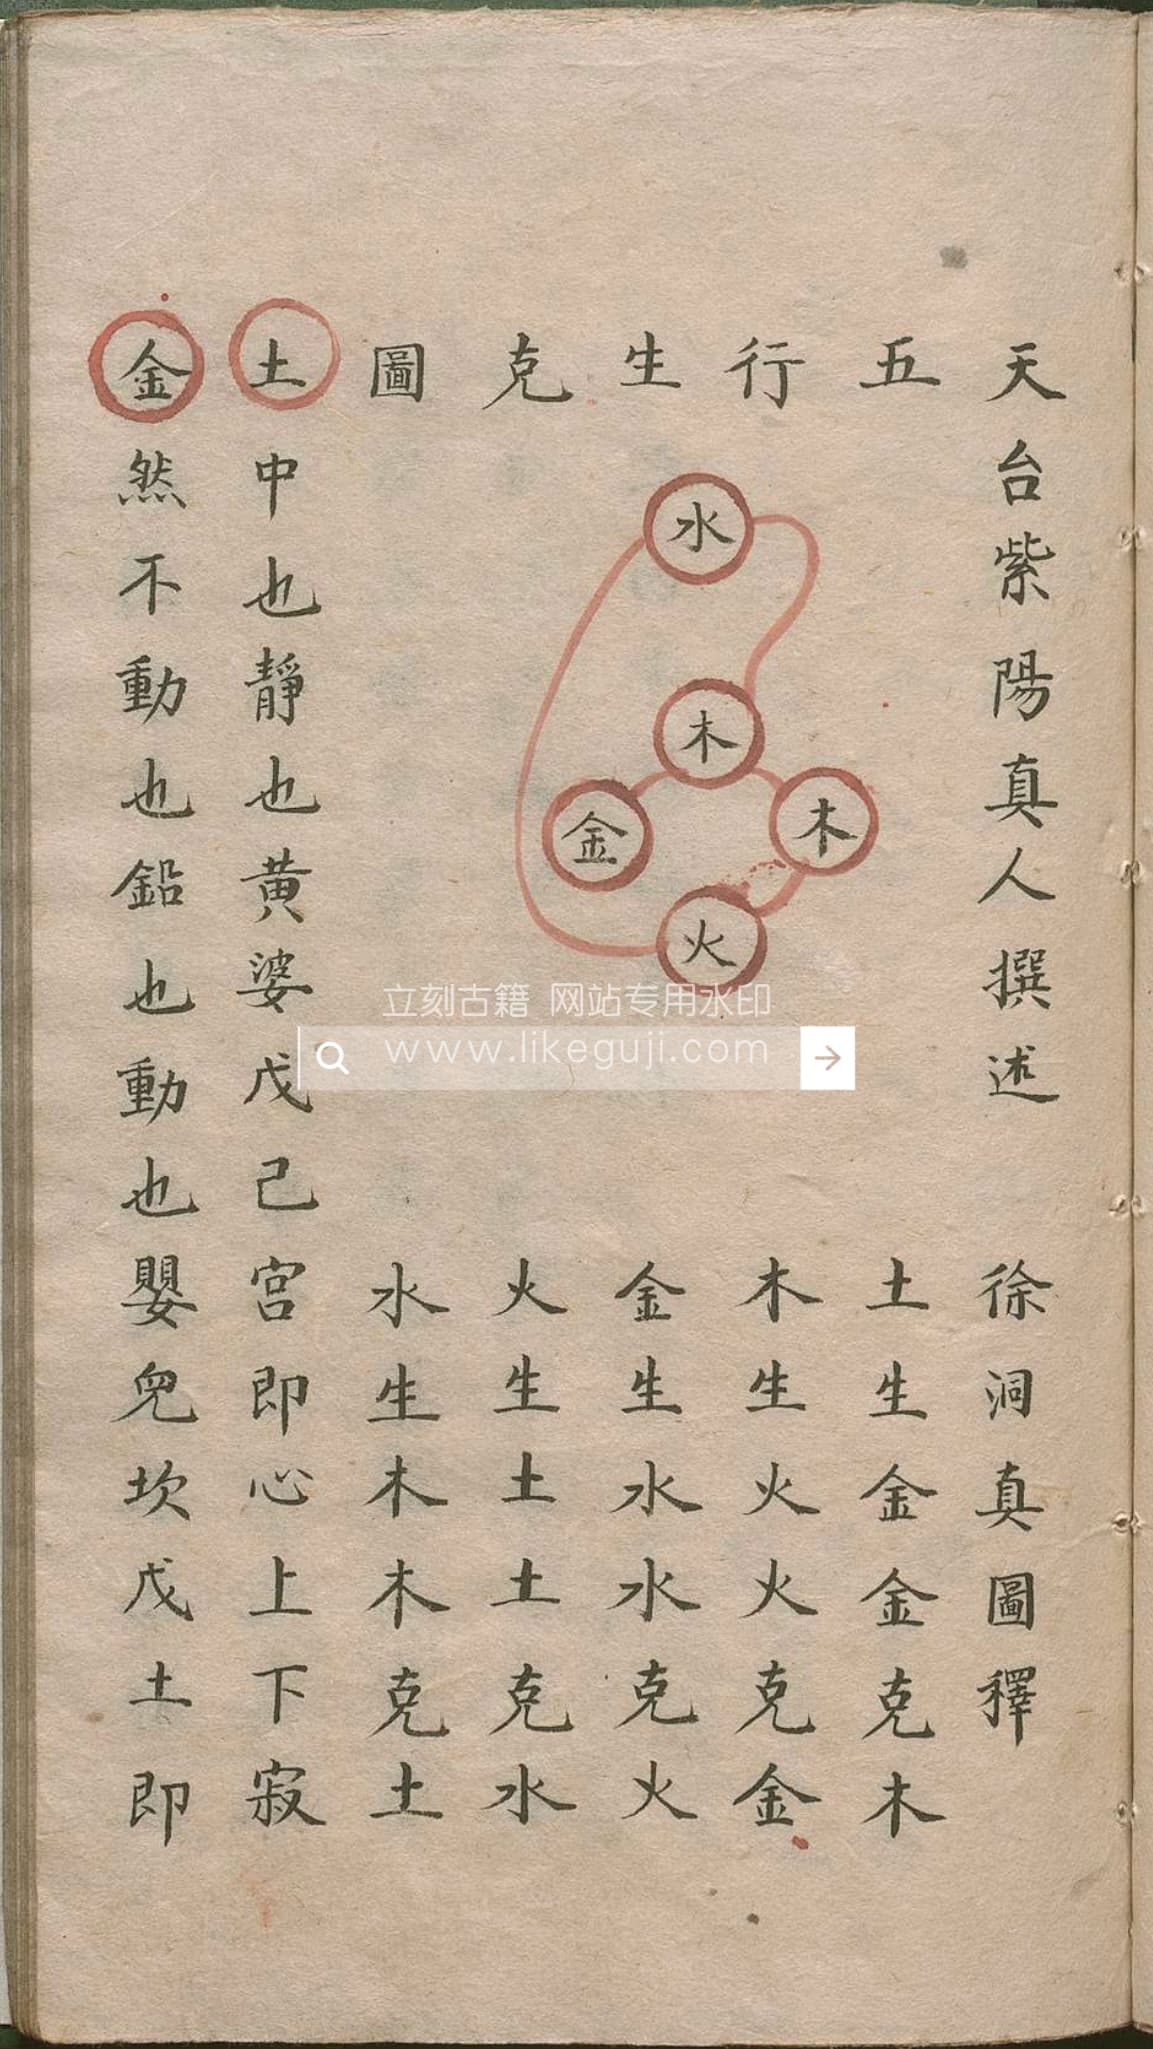 天台紫陽真人撰述 徐洞真圖釋
五行生克圖
水
木
金
木
火
土生金金克木
木生火火克金
金生水水克火
火生土土克水
水生木木克土
土中也靜也黄婆戊己宮即心上下寂
金然不動也鉛也動也嬰兒坎戊土即
立刻古籍 网站专用水印
www.likeguji.com